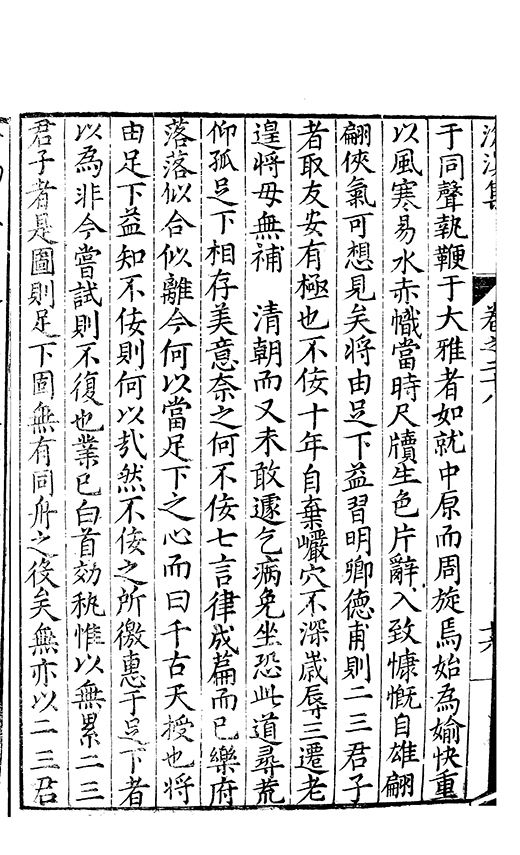 滄溟集
卷之二十八
十六
于同聲執鞭于大雅者如就中原而周旋焉始為媮快重
以風寒易水赤幟當時尺牘生色片辭入致慷慨自雄翩
翩俠氣可想見矣將由足下益習明卿德甫則二三君子
者取友安有極也不佞十年自棄巖穴不深嵗辱三遷老
遑將母無補　清朝而又未敢遽乞病免坐恐此道尋荒
仰孤足下相存美意奈之何不佞七言律成篇而已樂府
落落似合似離今何以當足下之心而曰千古天授也將
由足下益知不佞則何以㢤然不佞之所徼惠于足下者
以為非今嘗試則不復也業已白首効秇惟以無累二三
君子者是圖則足下固無有同舟之後矣無亦以二三君